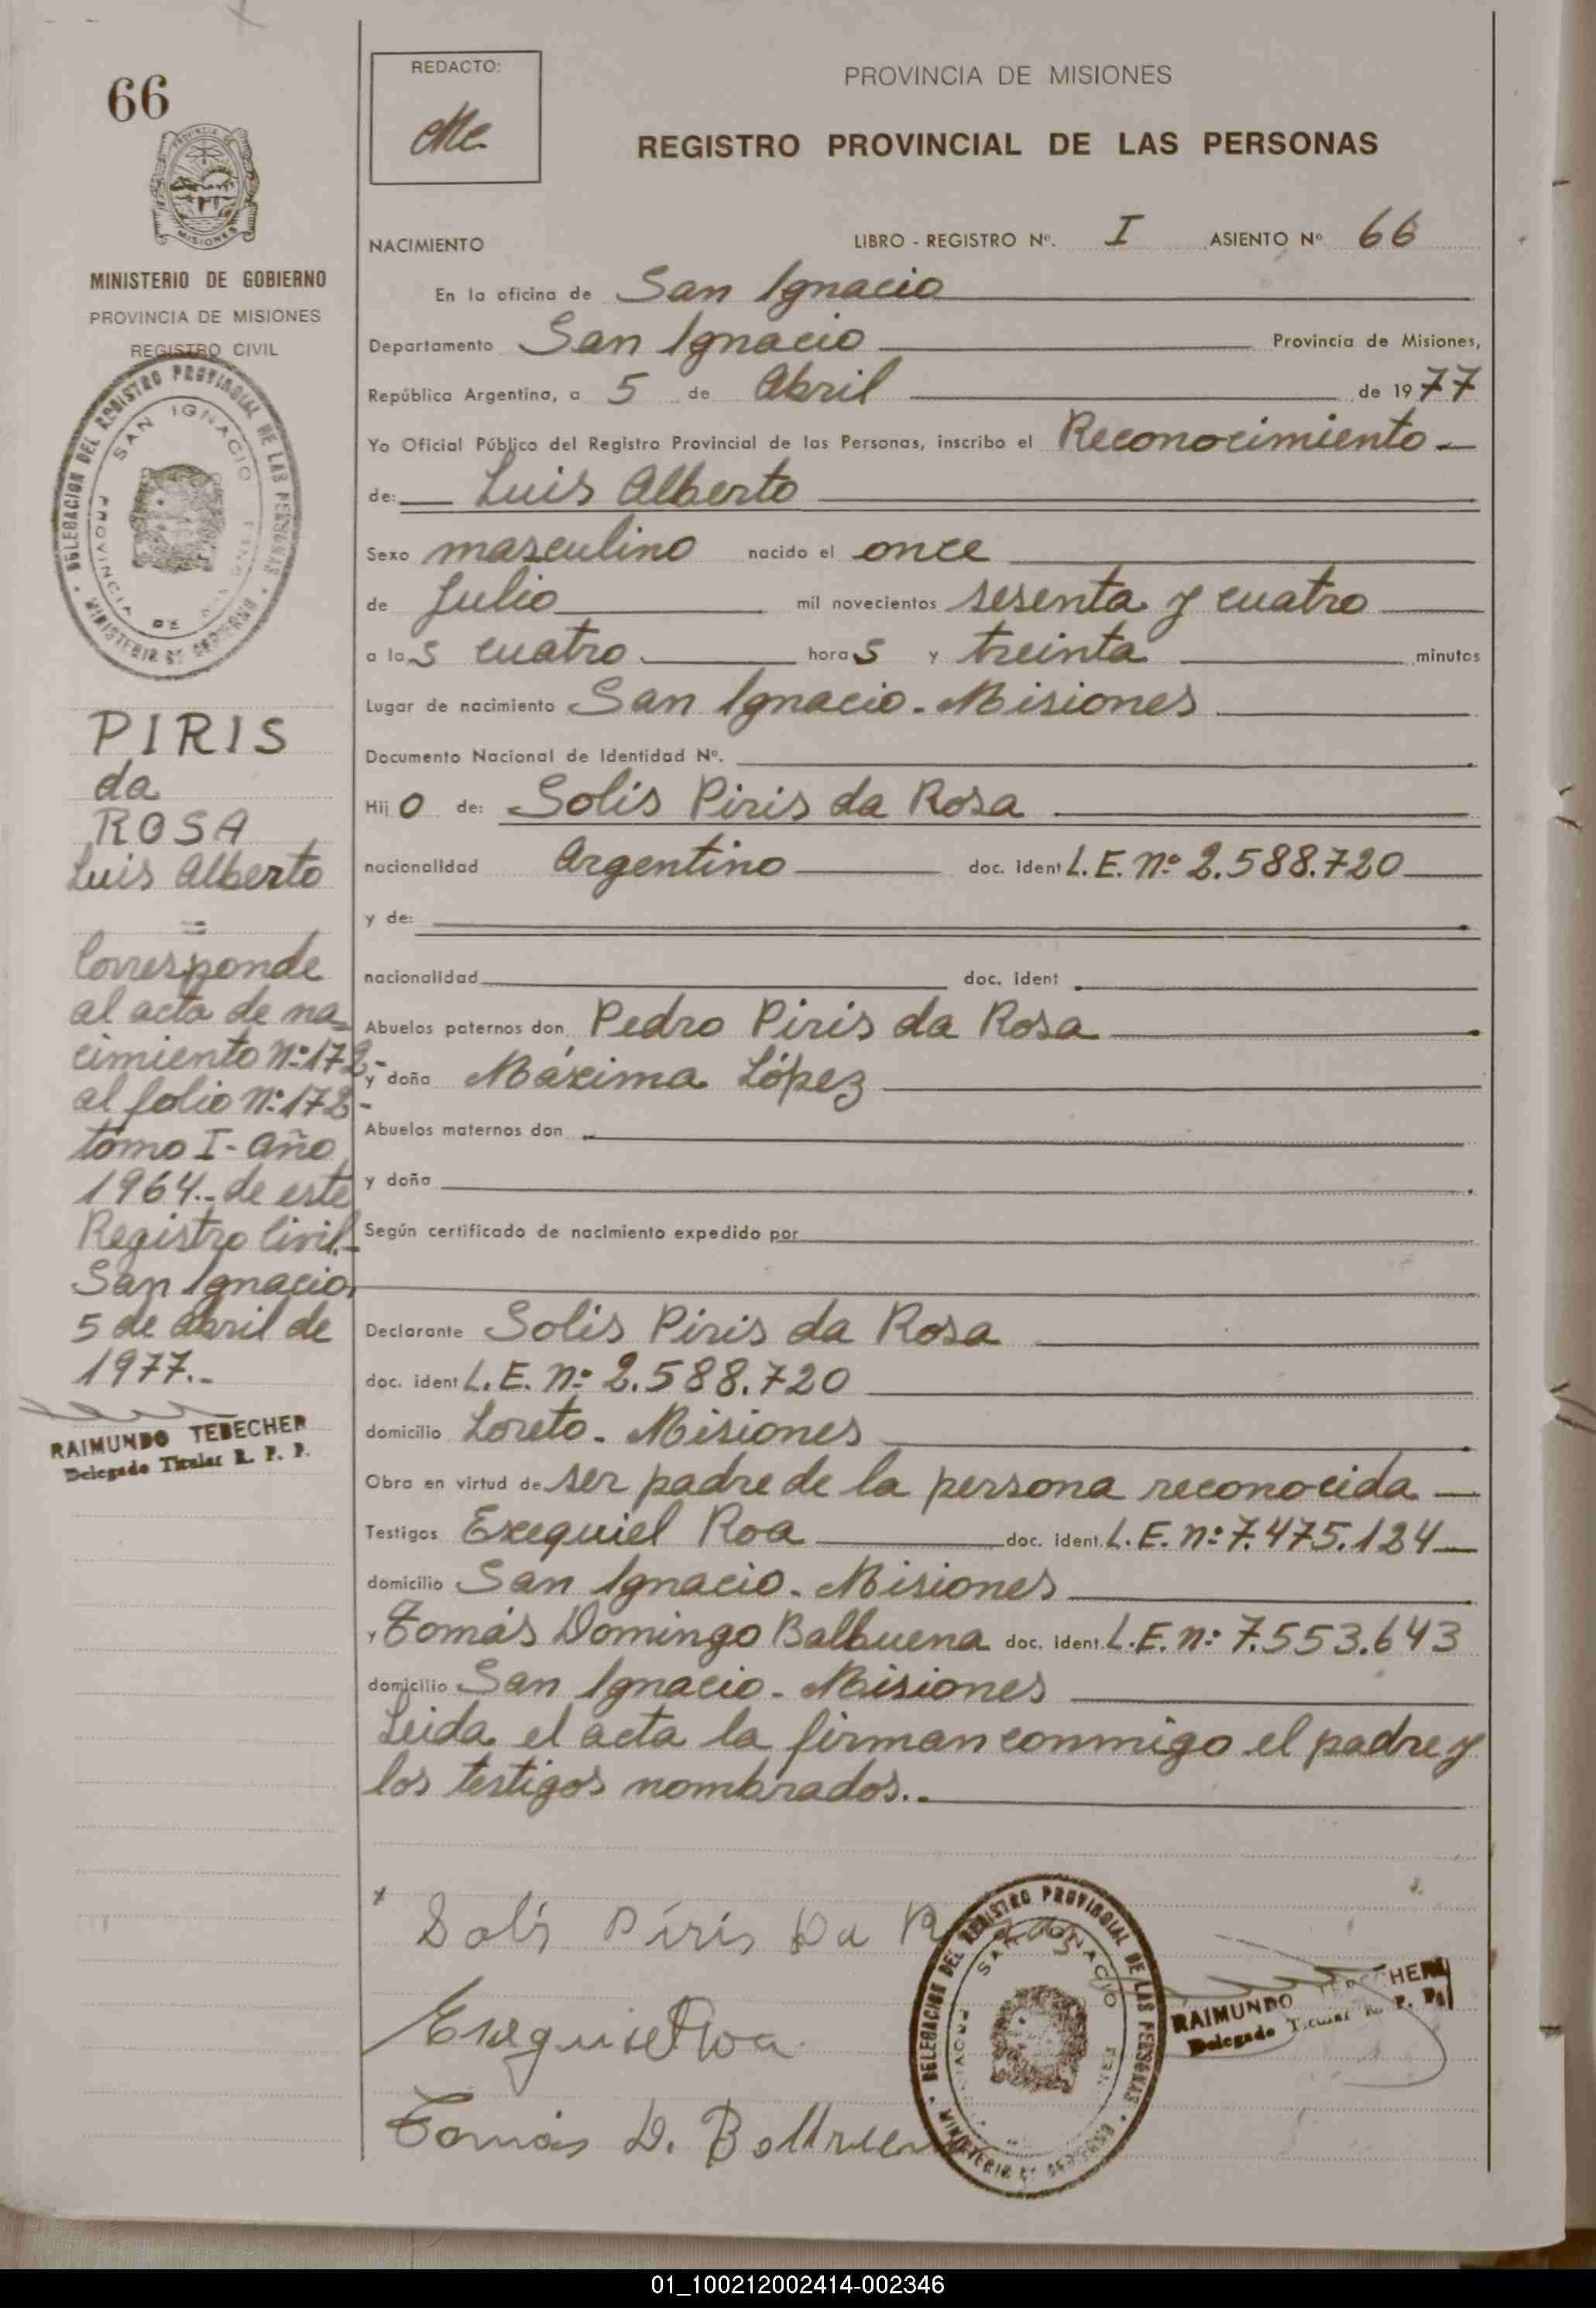 66
PROVINCIA DE MISIONES
MINISTERIO DE GOBIERNO
PROVINCIA DE MISIONES
REGISTRO CIVIL
DELEGACION DEL REGISTRO PROVINCIAL DE LAS PERSONAS
SAN IGNACIO
PROVINCIA DE
MINISTERIO DE GOBIERNO
PIRIS
da
ROSA
Luis Alberto
=
Corresponde
al acta de na=
cimiento Nº 172-
al folio Nº 172-
tomo I - Año
1964.- de este
Registro Civil.-
San Ignacio
5 de abril de
1977.-
RAIMUNDO TEBECHER
Delegado Titular R. P. P.
REDACTO:
PROVINCIA DE MISIONES
REGISTRO PROVINCIAL DE LAS PERSONAS
NACIMIENTO LIBRO - REGISTRO Nº. I ASIENTO Nº 66
En la oficina de San Ignacio
Departamento San Ignacio Provincia de Misiones,
República Argentina, a 5 de Abril de 1977
Yo Oficial Público del Registro Provincial de las Personas, inscribo el Reconocimiento
de: Luis Alberto
Sexo masculino nacido el once
de Julio mil novecientos sesenta y cuatro
a las cuatro horas y treinta minutos
Lugar de nacimiento San Ignacio - Misiones
Documento Nacional de Identidad Nº.
Hijo de: Solis Piris da Rosa
nacionalidad Argentino doc. ident L.E. Nº 2.588.720
y de:
nacionalidad doc. ident
Abuelos paternos don Pedro Piris da Rosa
y doña Máxima López
Abuelos maternos don
y doña
Según certificado de nacimiento expedido por
Declarante Solis Piris da Rosa
doc. ident L.E. Nº 2.588.720
domicilio Loreto - Misiones
Obra en virtud de ser padre de la persona reconocida
Testigos Exequiel Roa doc. ident. L.E. Nº 7.475.124
domicilio San Ignacio - Misiones
y Tomás Domingo Balbuena doc. ident. L.E. Nº 7.553.643
domicilio San Ignacio - Misiones
Leida el acta la firman conmigo el padre y
los testigos nombrados.-
Solis Piris Da
Exequiel Roa
Tomás D.
DELEGACION DEL REGISTRO PROVINCIAL DE LAS PERSONAS
SAN IGNACIO
MINISTERIO DE GOBIERNO
RAIMUNDO TEBECHER
Delegado Titular R. P. P.
01_100212002414-002346